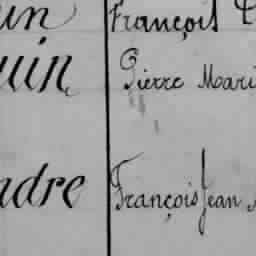 un François
uin Pierre Mari
ndre François Jean